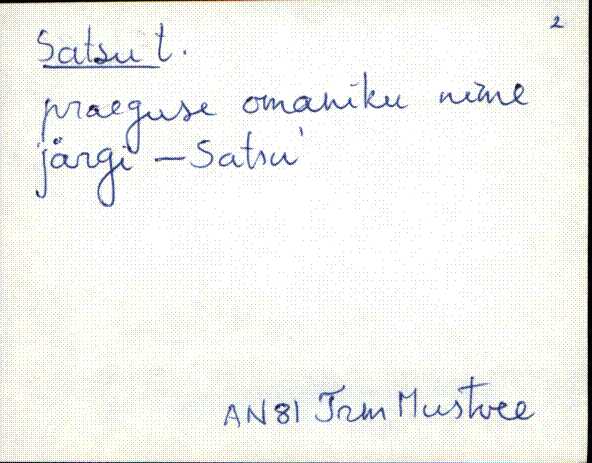 2
Satsu t.
praeguse omaniku nime
järgi – Satsu'
AN81 Trm Mustvee